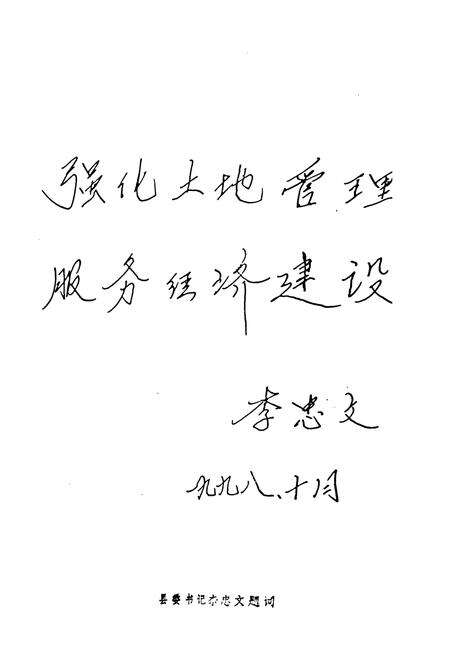 强化土地管理
服务经济建设
李忠文
九九八、十月
县委书记李忠文题词